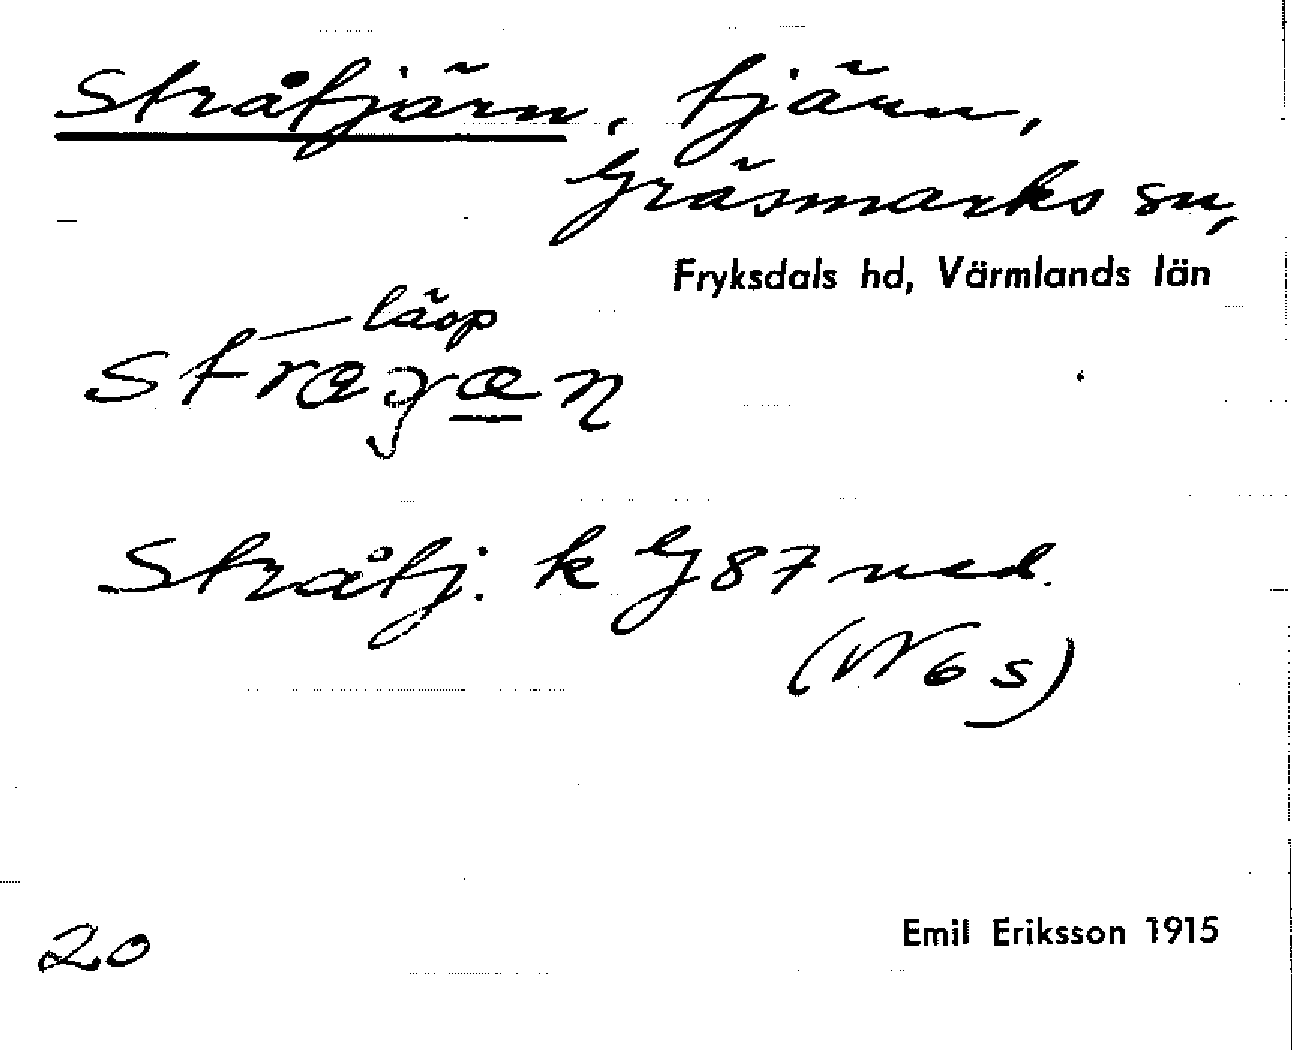 Stråtjärn, tjärn,
Gräsmarks sn,
Fryksdals hd, Värmlands län
läop
Stråtj. k G 87 ned.
(W 6 s)
20
Emil Eriksson 1915